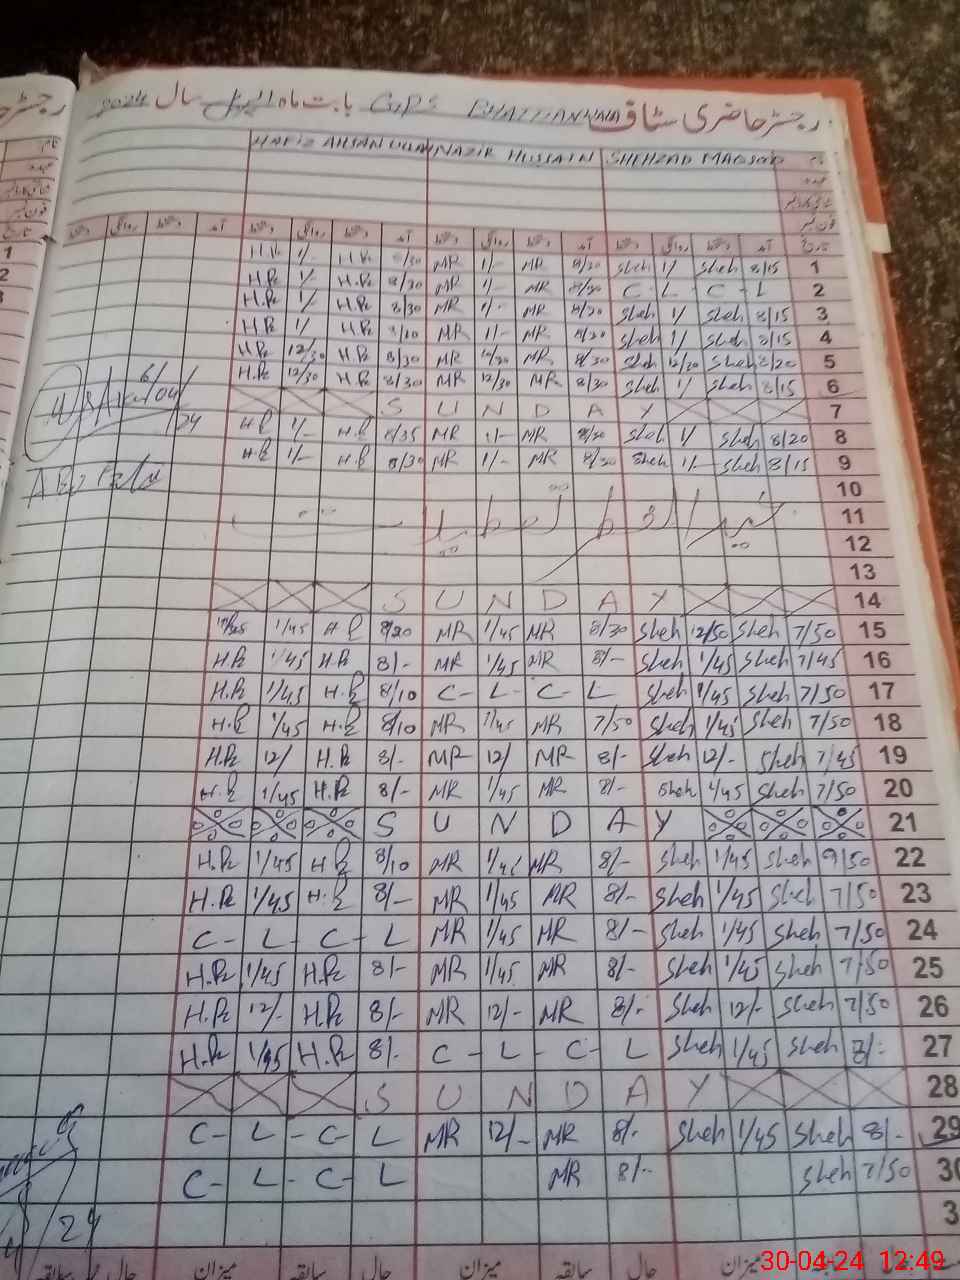 رجسٹر حاضری سٹاف GPS BHATTIANWALA بابت ماہ اپریل سال 2024
نام SHEHZAD MAQSOOD NAZIR HUSSAIN HAFIZ AHSAN ULLAH
عہدہ
شناختی کارڈ نمبر
فون نمبر
تاریخ آمد دستخط روانگی دستخط آمد دستخط روانگی دستخط آمد دستخط روانگی دستخط آمد دستخط روانگی دستخط
H.R 1/- H.R 8/30 MR 1/- MR 8/20 Sheh 1/ Sheh 8/15 1
H.R 1/- H.R 8/30 MR 1/- MR 8/30 C - L - C - L 2
H.R 1/- H.R 8/30 MR 1/- MR 8/20 Sheh 1/ Sheh 8/15 3
H.R 1/ H.R MR 1/- MR 8/20 Sheh 1/ Sheh 8/15 4
H.R 12/30 H.R 8/30 MR 12/30 MR 8/30 Sheh 12/30 Sheh 8/20 5
H.R 12/30 H.R 8/30 MR 12/30 MR 8/30 Sheh 1/ Sheh 8/15 6
S U N D A Y 7
H.R 1/- H.R 8/35 MR 1/- MR 8/30 Sheh 1/ Sheh 8/20 8
H.R 1/- H.R 8/30 MR 1/- MR 8/30 Sheh 1/- Sheh 8/15 9
10
عید الفطر 11
12
13
S U N D A Y 14
1/45 H.R 8/20 MR 1/45 MR 8/30 Sheh 12/50 Sheh 7/50 15
H.R 1/45 H.R 8/- MR 1/45 MR 8/- Sheh 1/45 Sheh 7/45 16
H.R 1/45 H.R 8/10 C - L - C - L Sheh 1/45 Sheh 7/50 17
H.R 1/45 H.R 8/10 MR 1/45 MR 7/50 Sheh 1/45 Sheh 7/50 18
H.R 12/ H.R 8/- MR 12/ MR 8/- Sheh 12/- Sheh 7/45 19
H.R 1/45 H.R 8/- MR 1/45 MR 8/- Sheh 1/45 Sheh 7/50 20
S U N D A Y 21
H.R 1/45 H.R 8/10 MR 1/45 MR 8/- Sheh 1/45 Sheh 9/50 22
H.R 1/45 H.R 8/- MR 1/45 MR 8/- Sheh 1/45 Sheh 7/50 23
C - L - C - L MR 1/45 MR 8/- Sheh 1/45 Sheh 7/50 24
H.R 1/45 H.R 8/- MR 1/45 MR 8/- Sheh 1/45 Sheh 7/50 25
H.R 12/- H.R 8/- MR 12/- MR 8/- Sheh 12/- Sheh 7/50 26
H.R 1/45 H.R 8/- C - L - C - L Sheh 1/45 Sheh 8/- 27
S U N D A Y 28
C - L - C - L MR 12/- MR 8/- Sheh 1/45 Sheh 8/- 29
C - L - C - L MR 8/- Sheh 7/50 30
3
حال سابقہ میزان حال سابقہ میزان حال سابقہ میزان حال سابقہ
30-04-24 12:49